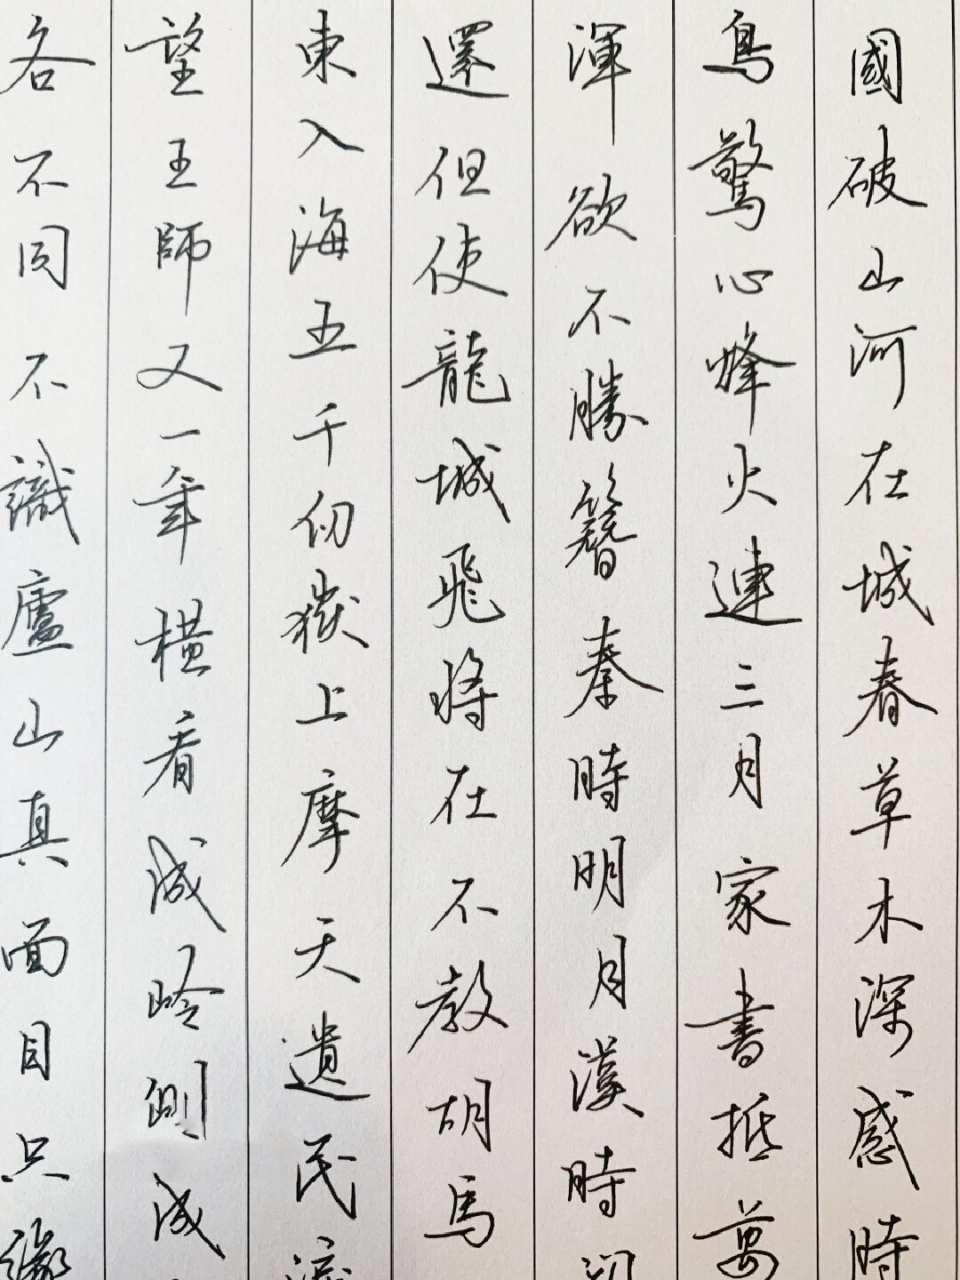 國破山河在城春草木深感時
鳥驚心烽火連三月家書抵萬
渾欲不勝簪秦時明月漢時關
還但使龍城飛將在不教胡馬
東入海五千仞嶽上摩天遺民淚
望王師又一年橫看成嶺側成
各不同不識廬山真面目只緣